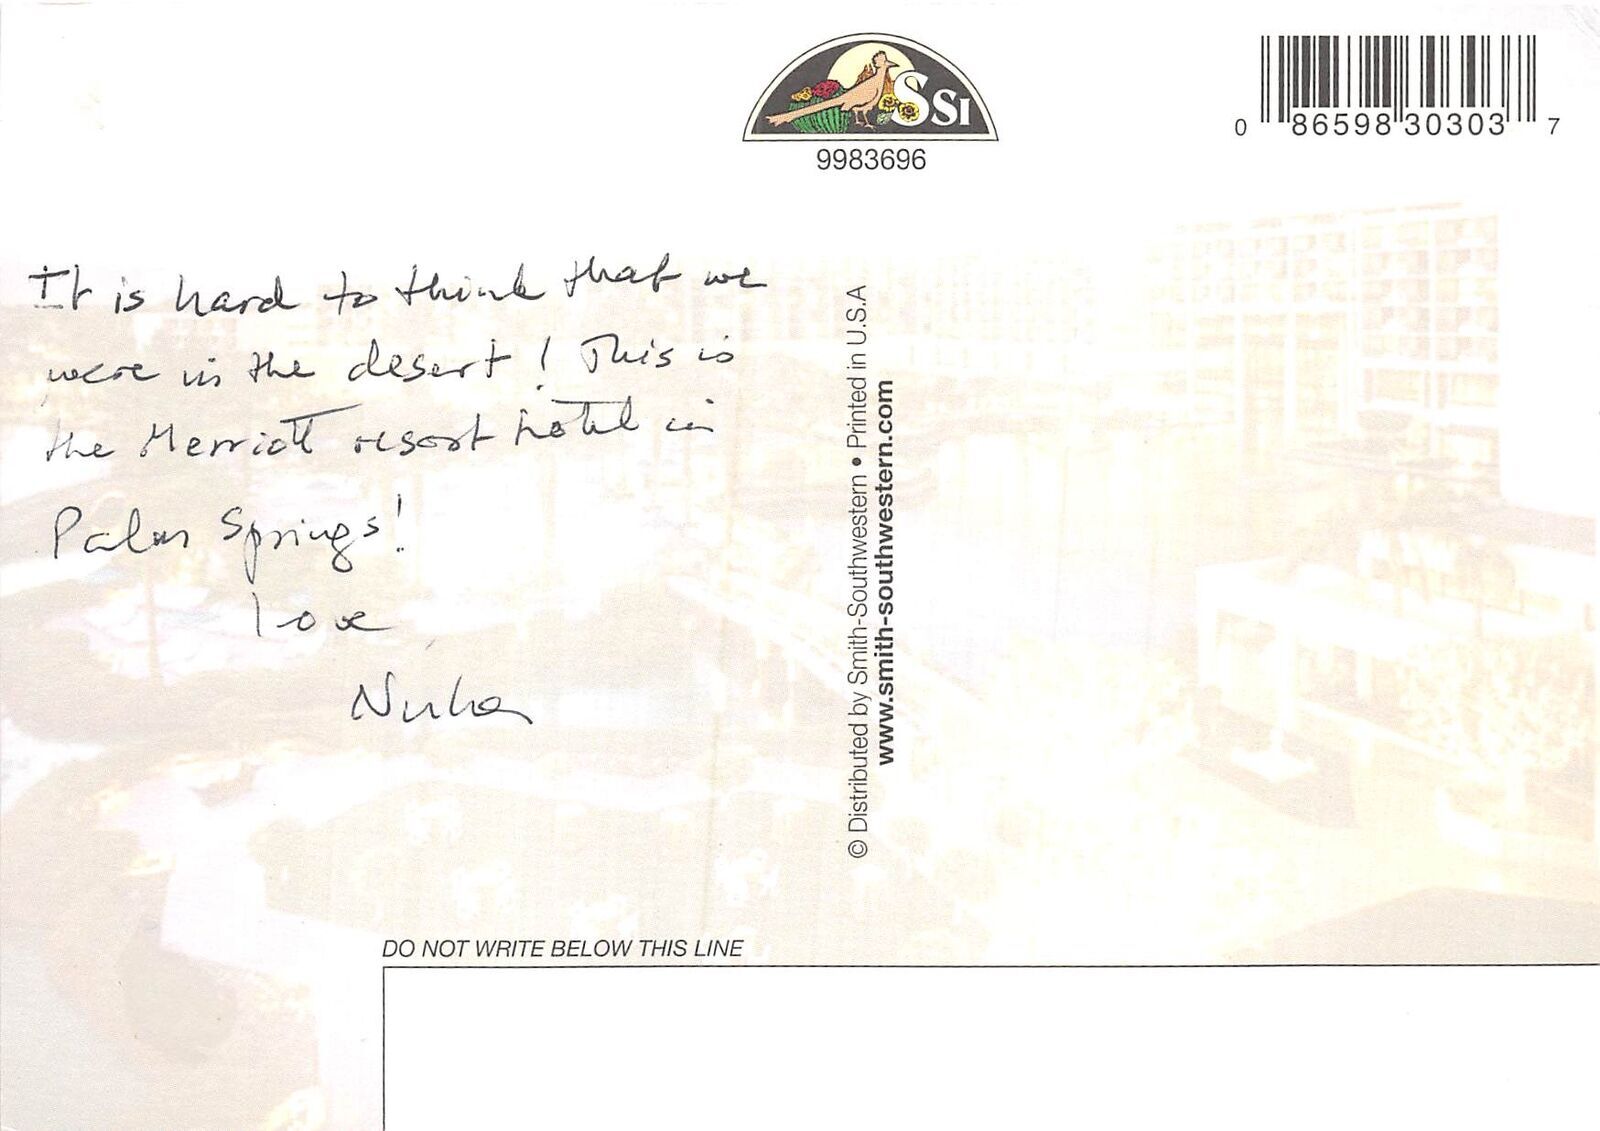 SSI
9983696
0 86598 30303 7
It is hard to think that we
were in the desert! This is
the Merriott resort hotel in
Palm Springs!
love
© Distributed by Smith-Southwestern • Printed in U.S.A
www.smith-southwestern.com
DO NOT WRITE BELOW THIS LINE